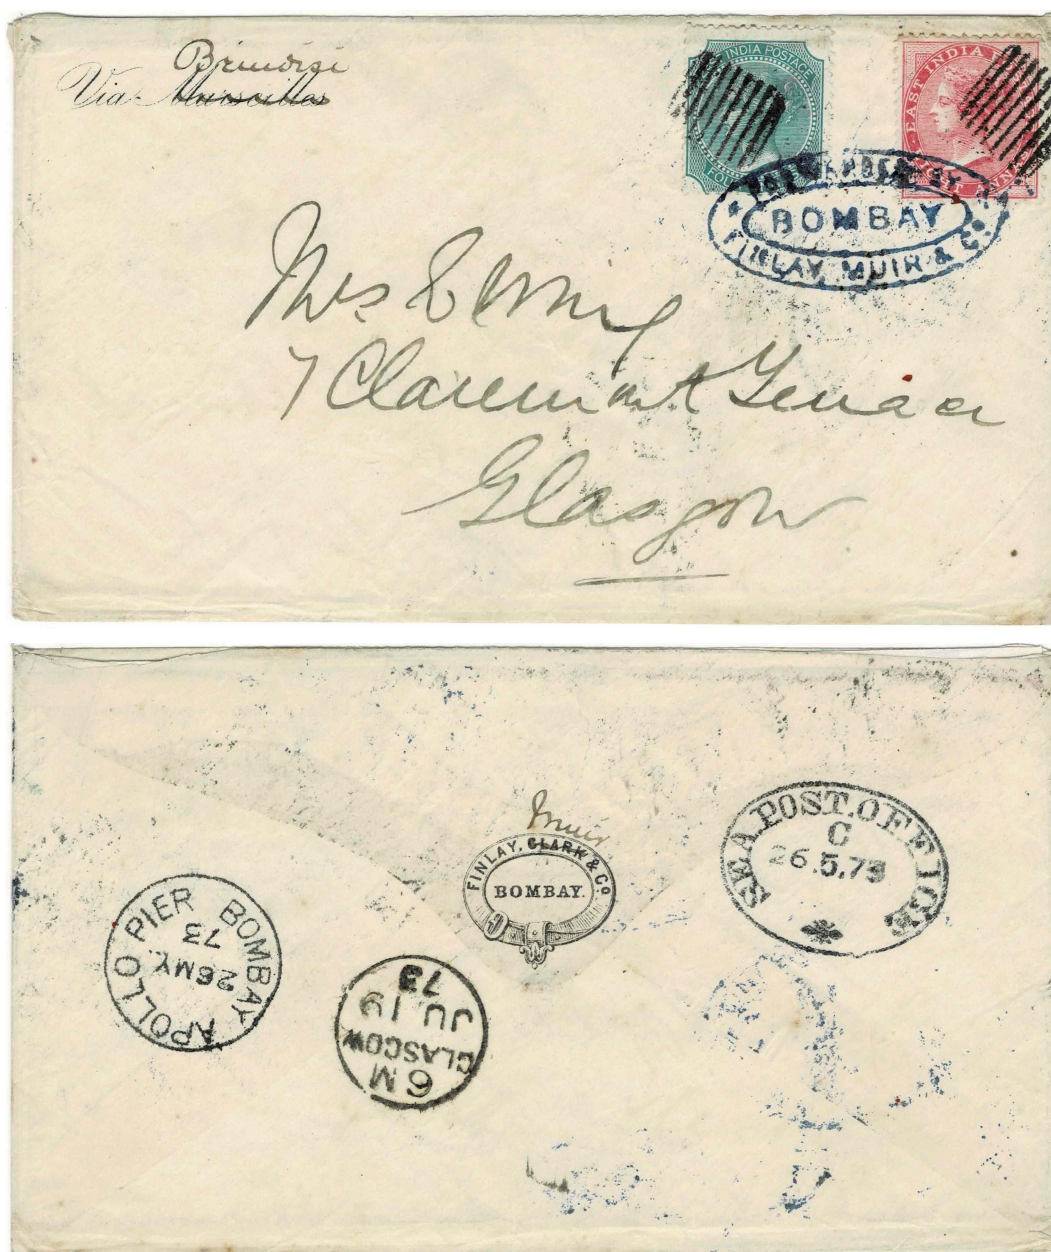 Brindisi
Via Marseilles
INDIA POSTAGE
EAST INDIA
FORWARDED BY
BOMBAY
FINLAY, MUIR & Co.
Mrs Ewing
7 Claremont Terrace
Glasgow
Muir
FINLAY, CLARK & Co.
BOMBAY.
SEA POST. OFFICE
C
26.5.73
APOLLO PIER BOMBAY
26 MY.
73
6 M
GLASGOW
JU 19
73